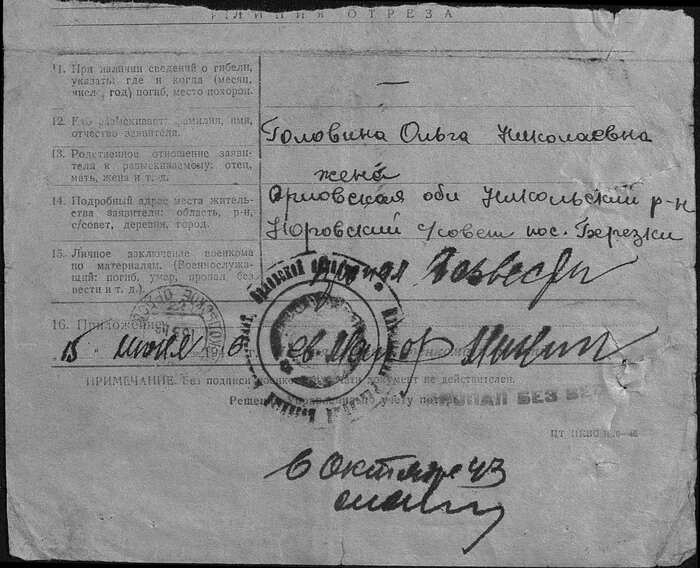 ЛИНИЯ ОТРЕЗА
11. При наличии сведений о гибели,
указать: где и когда (месяц,
число, год) погиб, место похорон.
—
12. Кто разыскивает: фамилия, имя,
отчество заявителя.
Головина Ольга Николаевна
13. Родственное отношение заяви-
теля к разыскиваемому: отец,
мать, жена и т. д.
жена
14. Подробный адрес места житель-
ства заявителя: область, р-н,
с/совет, деревня, город.
Орловская обл Никольский р-н
с/совет пос. Березки
15. Личное заключение военкома
по материалам. (Военнослужа-
щий: погиб, умер, пропал без
вести и т. д.)
16. Приложение
15 июня
майор
ПРИМЕЧАНИЕ: Без подписи военкома и печати документ не действителен.
Решение Управления по учету потерь
ПРОПАЛ БЕЗ
в октябре 43